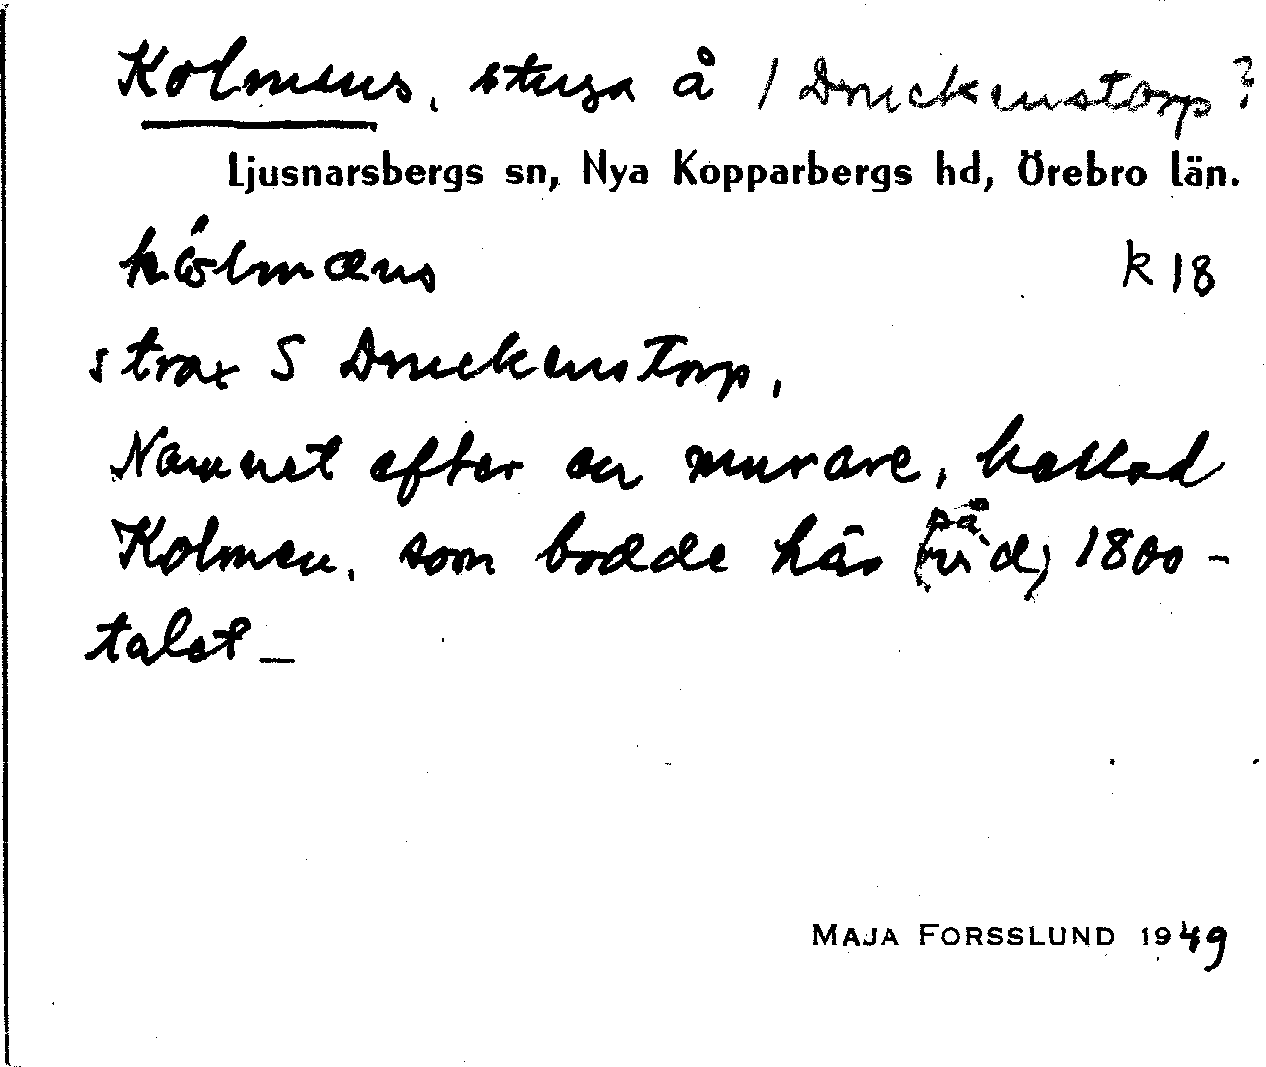 Kolmens, stuga å / Druckenstorp?
Ljusnarsbergs sn, Nya Kopparbergs hd, Örebro län.
kólmæns k 18
strax S Druckenstorp,
Namnet efter en murare, kallad
Kolmen, som bodde här på 1800-
talet –
MAJA FORSSLUND 1949